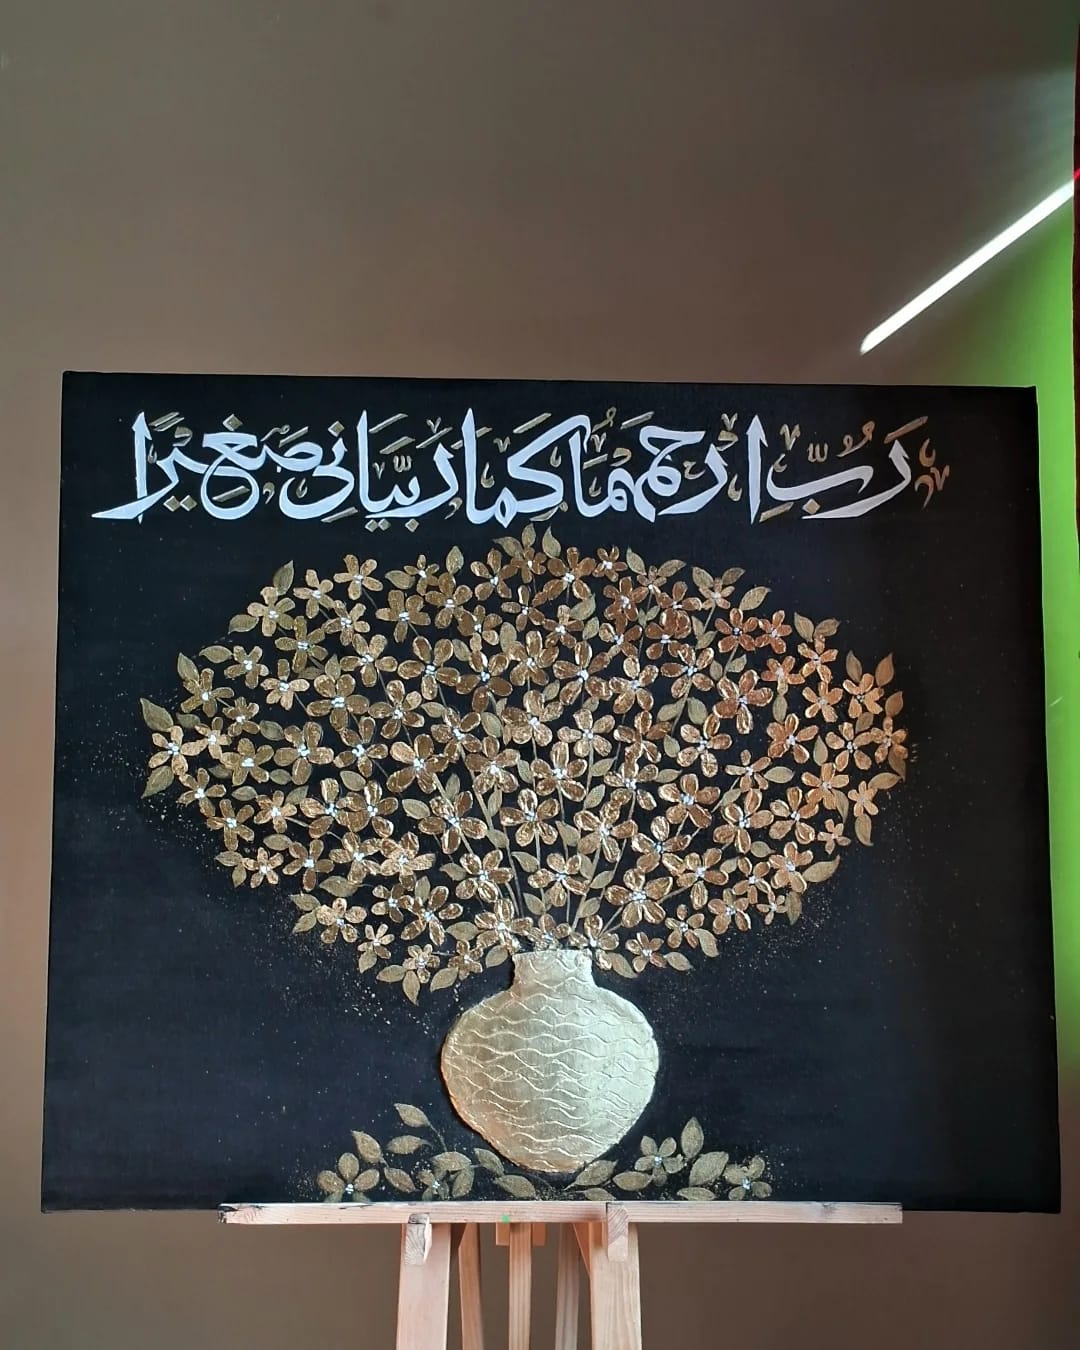 رَبُّ اِرحمهُمَا كمَا رَبَّيَانِى صَغِيرًا